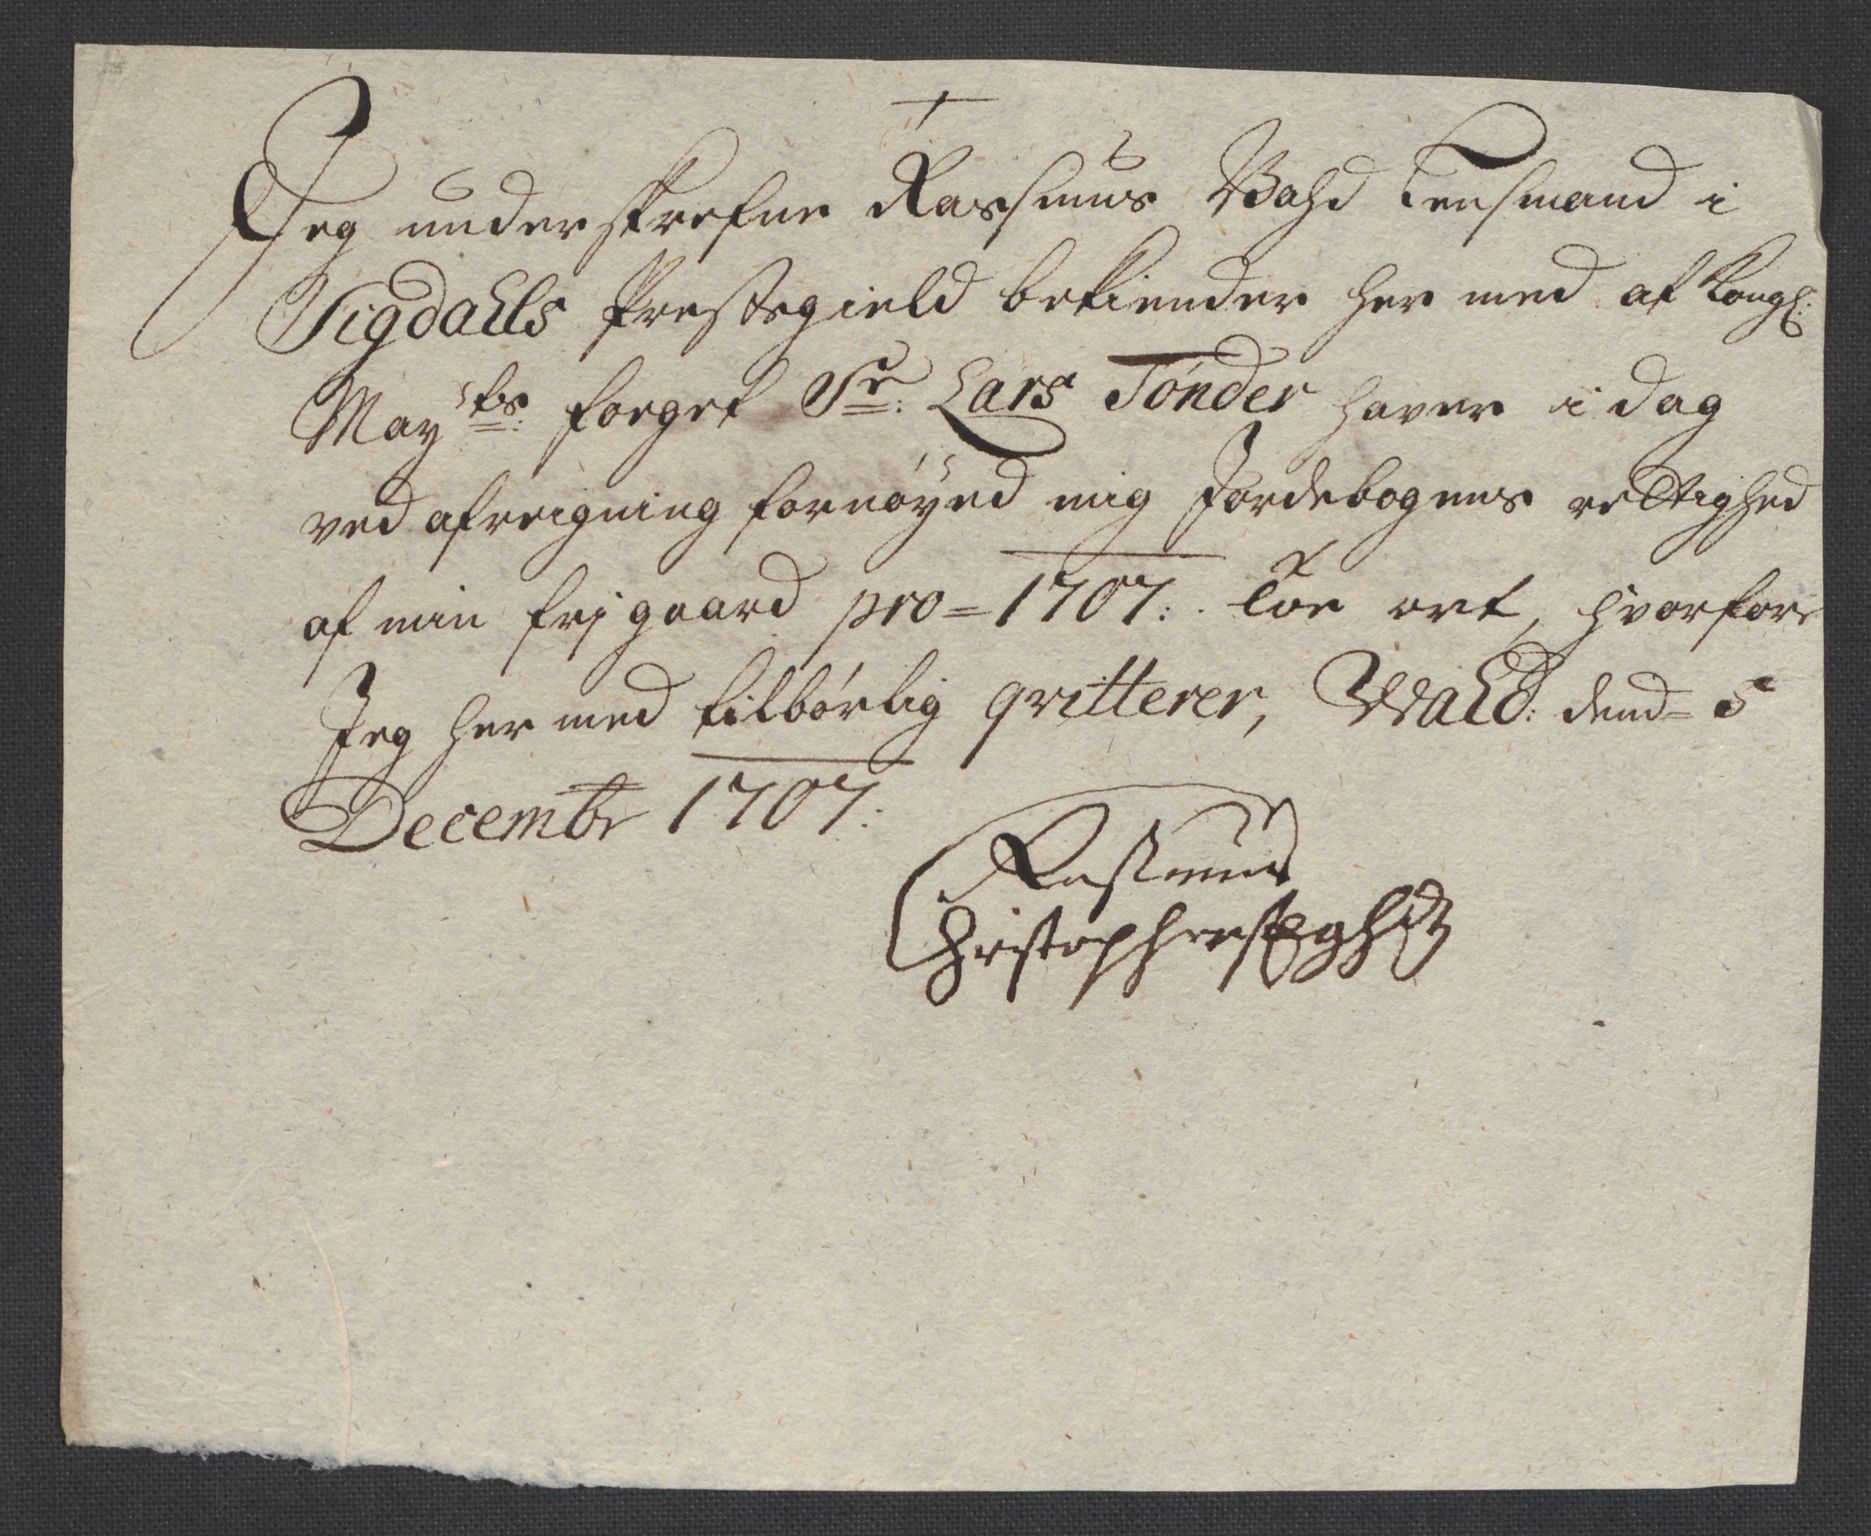 Jeg underskrefne Rassmus Vahd Lensmand i
Sigdahls Prestegield bekiender her med at Kongl:
May:ts foeget Sr: Lars Tønder haver i dag
ved afreigning fornøyed mig Jordebogens rettighed
af min frj gaard pro = 1707: toe ort, hvorfore
Jeg her med tilbørlig qvitterer, Wald: dend = 5
Decembr 1707:
Rasmus
Christophersen